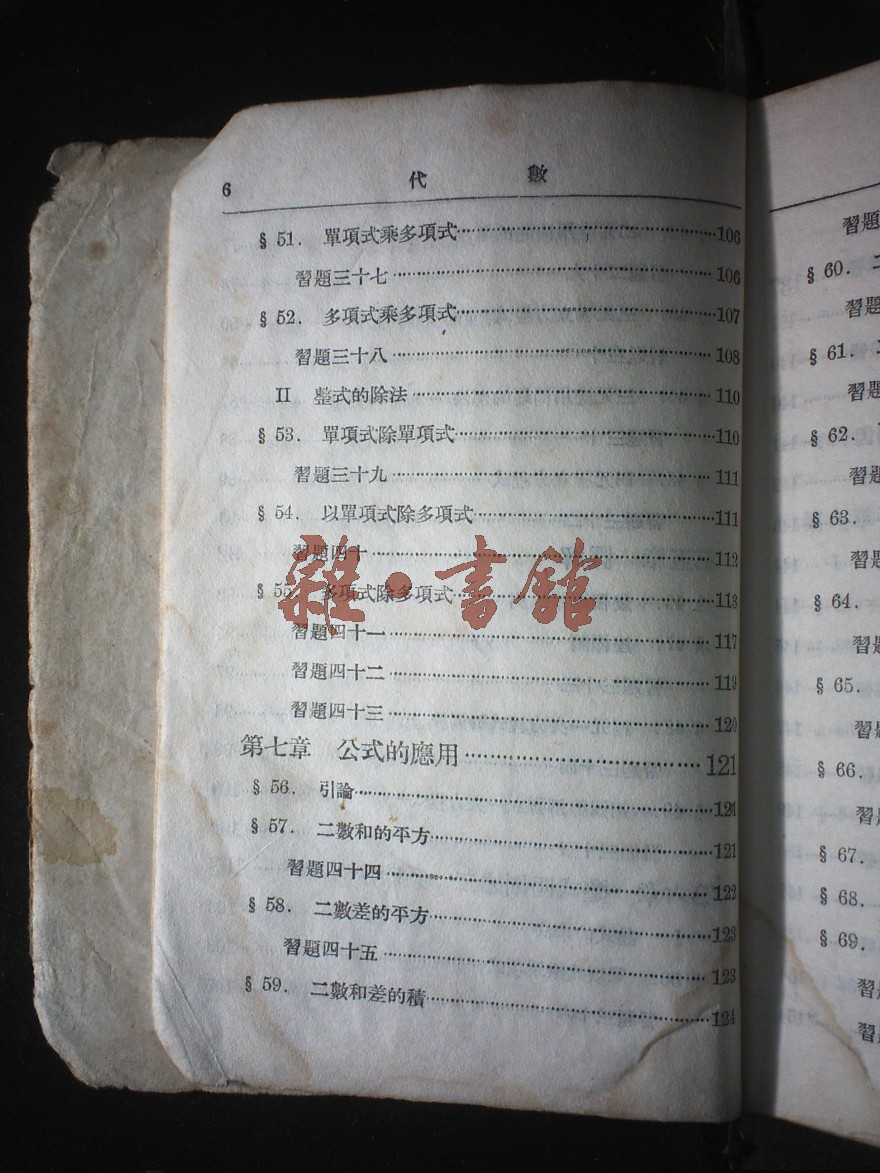 6 代 數
§ 51. 單項式乘多項式……106
習題三十七……106
§ 52. 多項式乘多項式……107
習題三十八……108
II 整式的除法……110
§ 53. 單項式除單項式……110
習題三十九……111
§ 54. 以單項式除多項式……111
習題四十……112
§ 55. 多項式除多項式……113
習題四十一……117
習題四十二……119
習題四十三……120
第七章 公式的應用……121
§ 56. 引論……121
§ 57. 二數和的平方……121
習題四十四……122
§ 58. 二數差的平方……123
習題四十五……123
§ 59. 二數和差的積……124
雜·書館
習題
§ 60. 二
習題
§ 61.
習題
§ 62.
習題
§ 63.
習題
§ 64.
習題
§ 65.
習題
§ 66.
習題
§ 67.
§ 68.
§ 69.
習題
習題